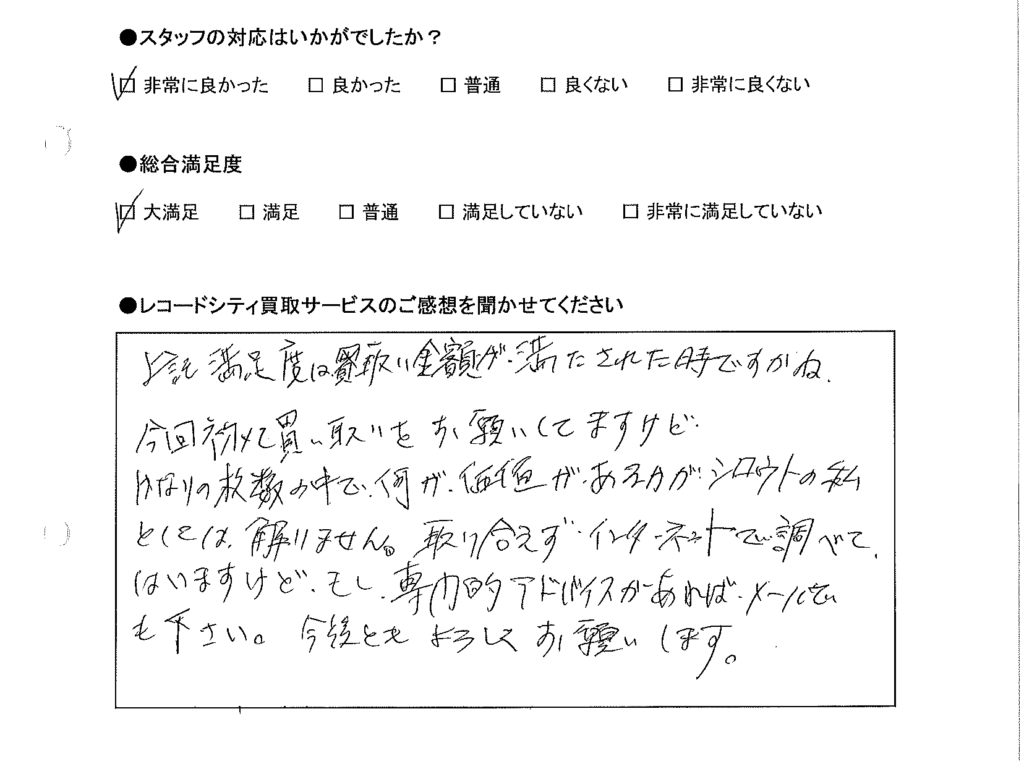 ●スタッフの対応はいかがでしたか？
☑ 非常に良かった　□ 良かった　□ 普通　□ 良くない　□ 非常に良くない
●総合満足度
☑ 大満足　□ 満足　□ 普通　□ 満足していない　□ 非常に満足していない
●レコードシティ買取サービスのご感想を聞かせてください
上記満足度は買取い金額が、満たされた時ですかね。
今回初めて買い取りをお願いしてますけど、
かなりの枚数の中で、何が、価値が、あるかが、シロウトの私
としては、解りません。取り合えず、インターネットで調べて、
はいますけど、もし、専門的アドバイスがあれば、メールでい
も下さい。今後ともよろしくお願いします。